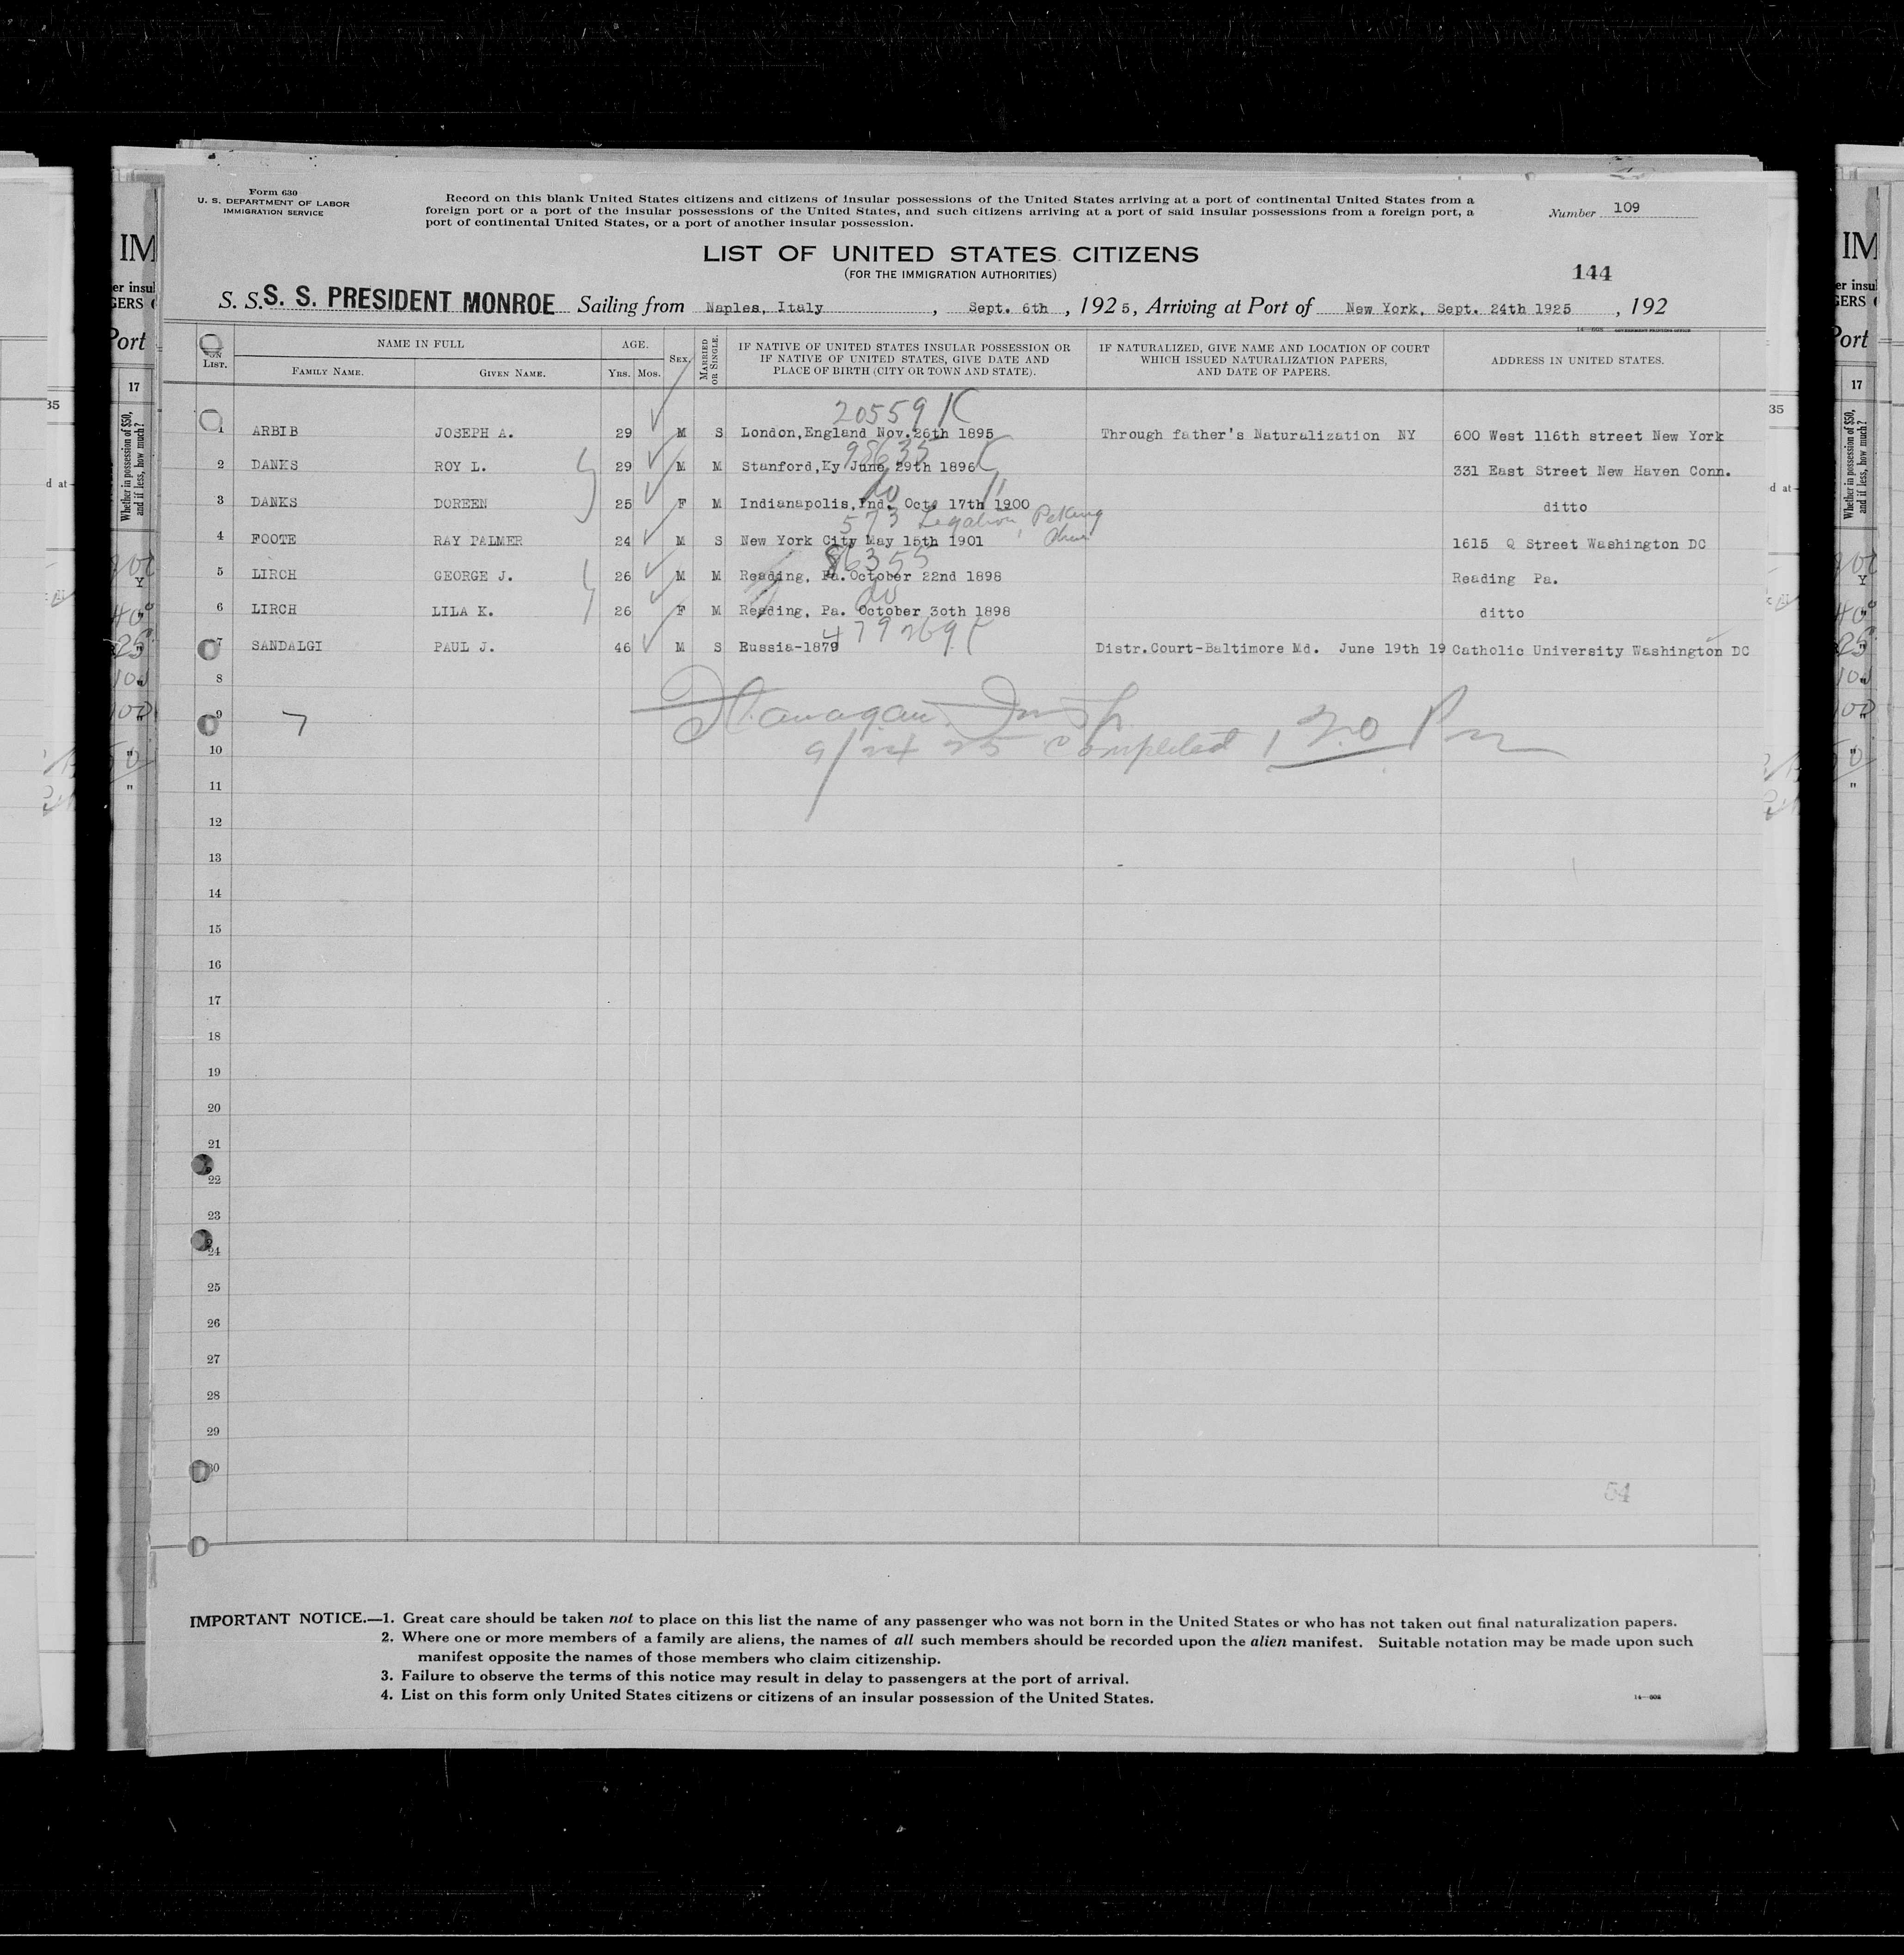 Form 630
U. S. DEPARTMENT OF LABOR
IMMIGRATION SERVICE
Record on this blank United States citizens and citizens of insular possessions of the United States arriving at a port of continental United States from a
foreign port or a port of the insular possessions of the United States, and such citizens arriving at a port of said insular possessions from a foreign port, a
port of continental United States, or a port of another insular possession.
Number 109
LIST OF UNITED STATES CITIZENS
(FOR THE IMMIGRATION AUTHORITIES)
144
S. S. S. S. PRESIDENT MONROE Sailing from Naples, Italy, Sept. 6th, 1925, Arriving at Port of New York, Sept. 24th 1925, 192
ON LIST. NAME IN FULL AGE. SEX. MARRIED OR SINGLE. IF NATIVE OF UNITED STATES INSULAR POSSESSION OR IF NATIVE OF UNITED STATES, GIVE DATE AND PLACE OF BIRTH (CITY OR TOWN AND STATE). IF NATURALIZED, GIVE NAME AND LOCATION OF COURT WHICH ISSUED NATURALIZATION PAPERS, AND DATE OF PAPERS. ADDRESS IN UNITED STATES.
FAMILY NAME. GIVEN NAME. YRS. MOS.
20559 K
1 ARBIB JOSEPH A. 29 M S London,England Nov.26th 1895 Through father's Naturalization NY 600 West 116th street New York
98635
2 DANKS ROY L. 29 M M Stanford,Ky June 29th 1896 331 East Street New Haven Conn.
do
3 DANKS DOREEN 25 F M Indianapolis,Ind. Oct. 17th 1900 ditto
573 Legation, Peking
4 FOOTE RAY PALMER 24 M S New York City May 15th 1901 1615 Q Street Washington DC
86355
5 LIRCH GEORGE J. 26 M M Reading, Pa.October 22nd 1898 Reading Pa.
do
6 LIRCH LILA K. 26 F M Reading, Pa. October 30th 1898 ditto
479269
7 SANDALGI PAUL J. 46 M S Russia-1879 Distr.Court-Baltimore Md. June 19th 19 Catholic University Washington DC
8
9 7 Flanagan Insp
10 9/24 25 Completed 1 20 Pm
11
12
13
14
15
16
17
18
19
20
21
22
23
24
25
26
27
28
29
30
54
IMPORTANT NOTICE.—1. Great care should be taken not to place on this list the name of any passenger who was not born in the United States or who has not taken out final naturalization papers.
2. Where one or more members of a family are aliens, the names of all such members should be recorded upon the alien manifest. Suitable notation may be made upon such
manifest opposite the names of those members who claim citizenship.
3. Failure to observe the terms of this notice may result in delay to passengers at the port of arrival.
4. List on this form only United States citizens or citizens of an insular possession of the United States.